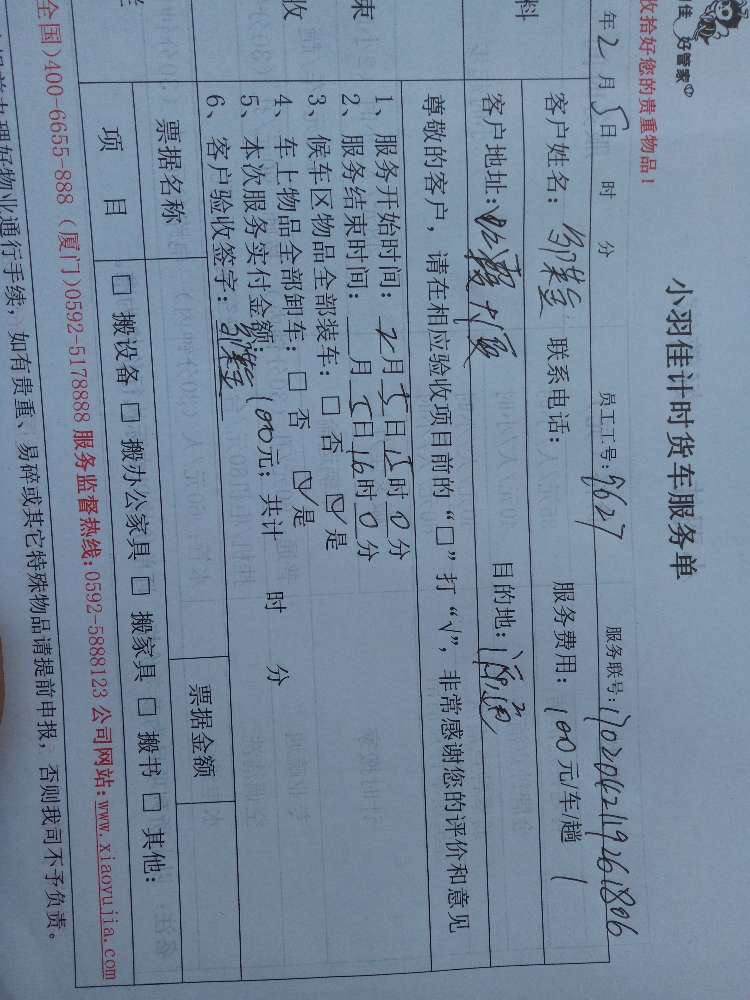 佳 好管家
收拾好您的贵重物品!
小羽佳计时货车服务单
年2月5日 时 分 员工工号:9627 服务联号:1702042119261806
料
客户姓名: 联系电话: 服务费用:100元/车/趟 1
客户地址: 目的地:
尊敬的客户,请在相应验收项目前的“□”打“√”,非常感谢您的评价和意见
束
收
1、服务开始时间:2月5日15时0分
2、服务结束时间: 月5日16时0分
3、候车区物品全部装车:□ 否 ☑ 是
4、车上物品全部卸车:□ 否 ☑ 是
5、本次服务实付金额:100元;共计 时 分
6、客户验收签字:
票据名称 票据金额
项 目 □ 搬设备 □ 搬办公家具 □ 搬家具 □ 搬书 □ 其他:
全国)400-6655-888 (厦门)0592-5178888 服务监督热线:0592-5888123 公司网站:www.xiaoyujia.com
办理好物业通行手续,如有贵重、易碎或其它特殊物品请提前申报,否则我司不予负责。